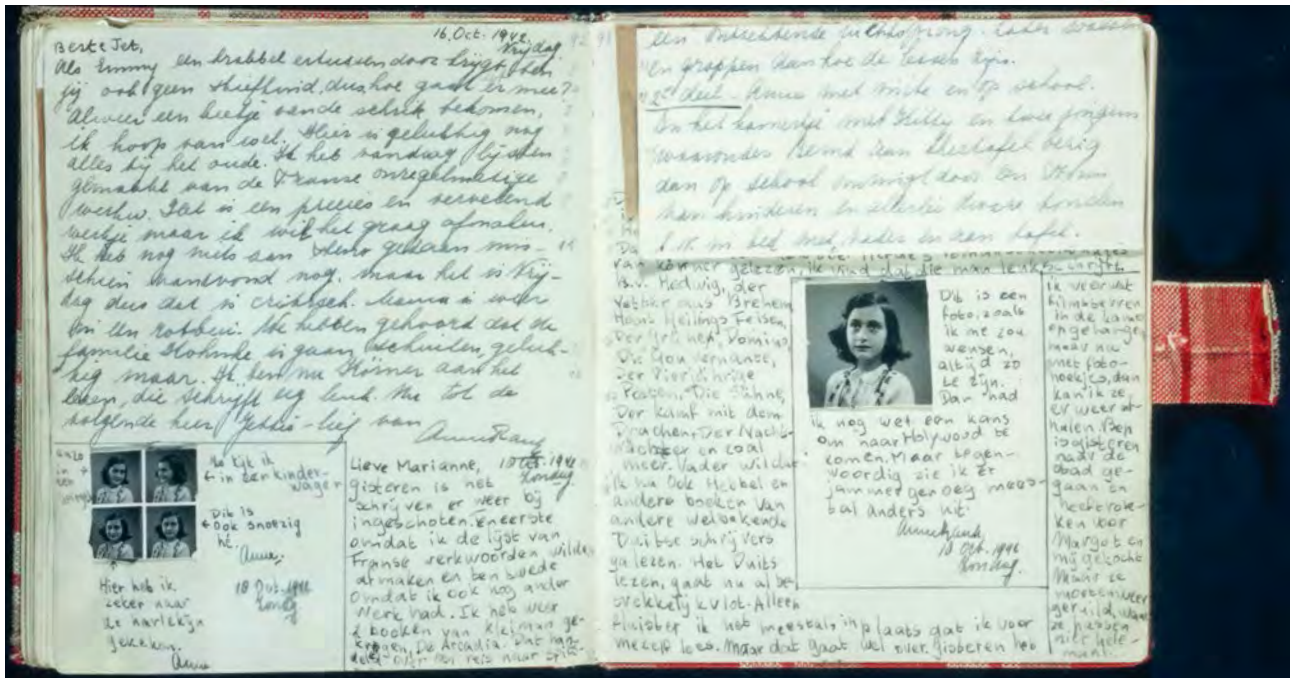 16 Oct. 1942
Vrijdag.
Beste Jet,
Als Emmy een krabbel ertussendoor krijgt, ben
jij ook geen stiefkind, dus hoe gaat er mee?
Alweer een beetje van de schrik bekomen,
ik hoop van wel. Hier is gelukkig nog
alles bij het oude. Ik heb vandaag lijsten
gemaakt van de Franse onregelmatige
werkw. Het is een precies en vervelend
werkje maar ik wil het graag afmaken.
Ik heb nog niets aan Steno gedaan mis-
schien vanavond nog, maar het is Vrij-
dag dus dat is critisch. Mama is weer
in een
We hebben gehoord dat de
familie is gaan schuilen, geluk-
kig maar. Ik ben nu Körner aan het
lezen, die schrijft erg leuk. Nu tot de
volgende keer Jettie-lief van
Anne Frank
Zo kijk ik
in een kinder-
wagen
Dit is
ook snoezig
hè.
Anne.
Hier heb ik
zeker naar
de harlekijn
gekeken.
Anne
18 Oct. 1942
Zondag
Lieve Marianne,
Oct. 1942
Zondag
gisteren is het
schrijven er weer bij
ingeschoten. Ten eerste
omdat ik de lijst van
Franse werkwoorden wilde
afmaken en ten tweede
omdat ik ook nog ander
werk had. Ik heb weer
2 boeken van Kleiman ge-
kregen, De Arcadia. Dat han-
delt over een reis naar
een
en grappen aan hoe de lessen zijn.
2e deel - Anne met mitte en op school.
In het kamertje met Kitty en twee jongens
waaronder Bernd aan theetafel bezig
dan op school omringd door een
van kinderen en allerlei
in bed met vader en aan tafel.
van Körner gelezen, ik vind dat die man leuk schrijft.
B.v. Hedwig, der
Vetter aus Bremen,
Hans Heilings Felsen,
Der Grünen, Domino,
Die Gouvernante,
Der Vierjährige
Posten, Die Sühne,
Der Kampf mit dem
Drachen, Der Nacht-
wächter en zoal
meer. Vader wil dat
ik nu ook Hebbel en
andere boeken van
andere welbekende
Duitse schrijvers
ga lezen. Het Duits
lezen, gaat nu al be-
trekkelijk vlot. Alleen
fluister ik het meestal, in plaats dat ik voor
mezelf lees. Maar dat gaat wel over. Gisteren heb
Dit is een
foto, zoals
ik me zou
wensen,
altijd zo
te zijn.
Dan had
ik nog wel een kans
om naar Holywood te
komen. Maar tegen-
woordig zie ik er
jammer genoeg mees-
tal anders uit.
Anne Frank
18 Oct. 1942
Zondag.
ik weer wat
filmsterren
in de kamer
opgehangen,
maar nu
met foto-
hoekjes, dan
kan ik ze
er weer af
halen. Bep
is gisteren
naar de
stad ge-
gaan en
heeft rok-
ken voor
Margot en
mij gekocht
Maar ze
moeten weer
geruild, want
ze passen
niet hele-
maal.